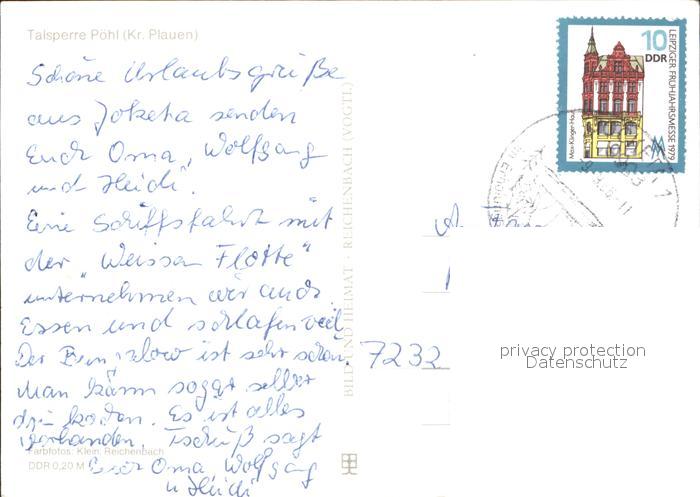 Talsperre Pöhl (Kr. Plauen)
Schöne Urlaubsgrüße
aus Jocketa senden
Euch Oma, Wolfgang
und Heidi.
Eine Schiffsfahrt mit
der "Weissen Flotte"
unternehmen wir auch.
Essen und schlafen viel.
Der ist sehr schön.
Man kann sogar selber
drin kochen. Es ist alles
vorhanden. Tschüß sagt
Eure Oma Wolfgang
u. Heidi
Farbfotos: Klein, Reichenbach
DDR 0,20 M
BILD UND HEIMAT · REICHENBACH (VOGTL)
10
DDR
LEIPZIGER FRÜHJAHRSMESSE 1979
Max-Klinger-Haus
7232
privacy protection
Datenschutz